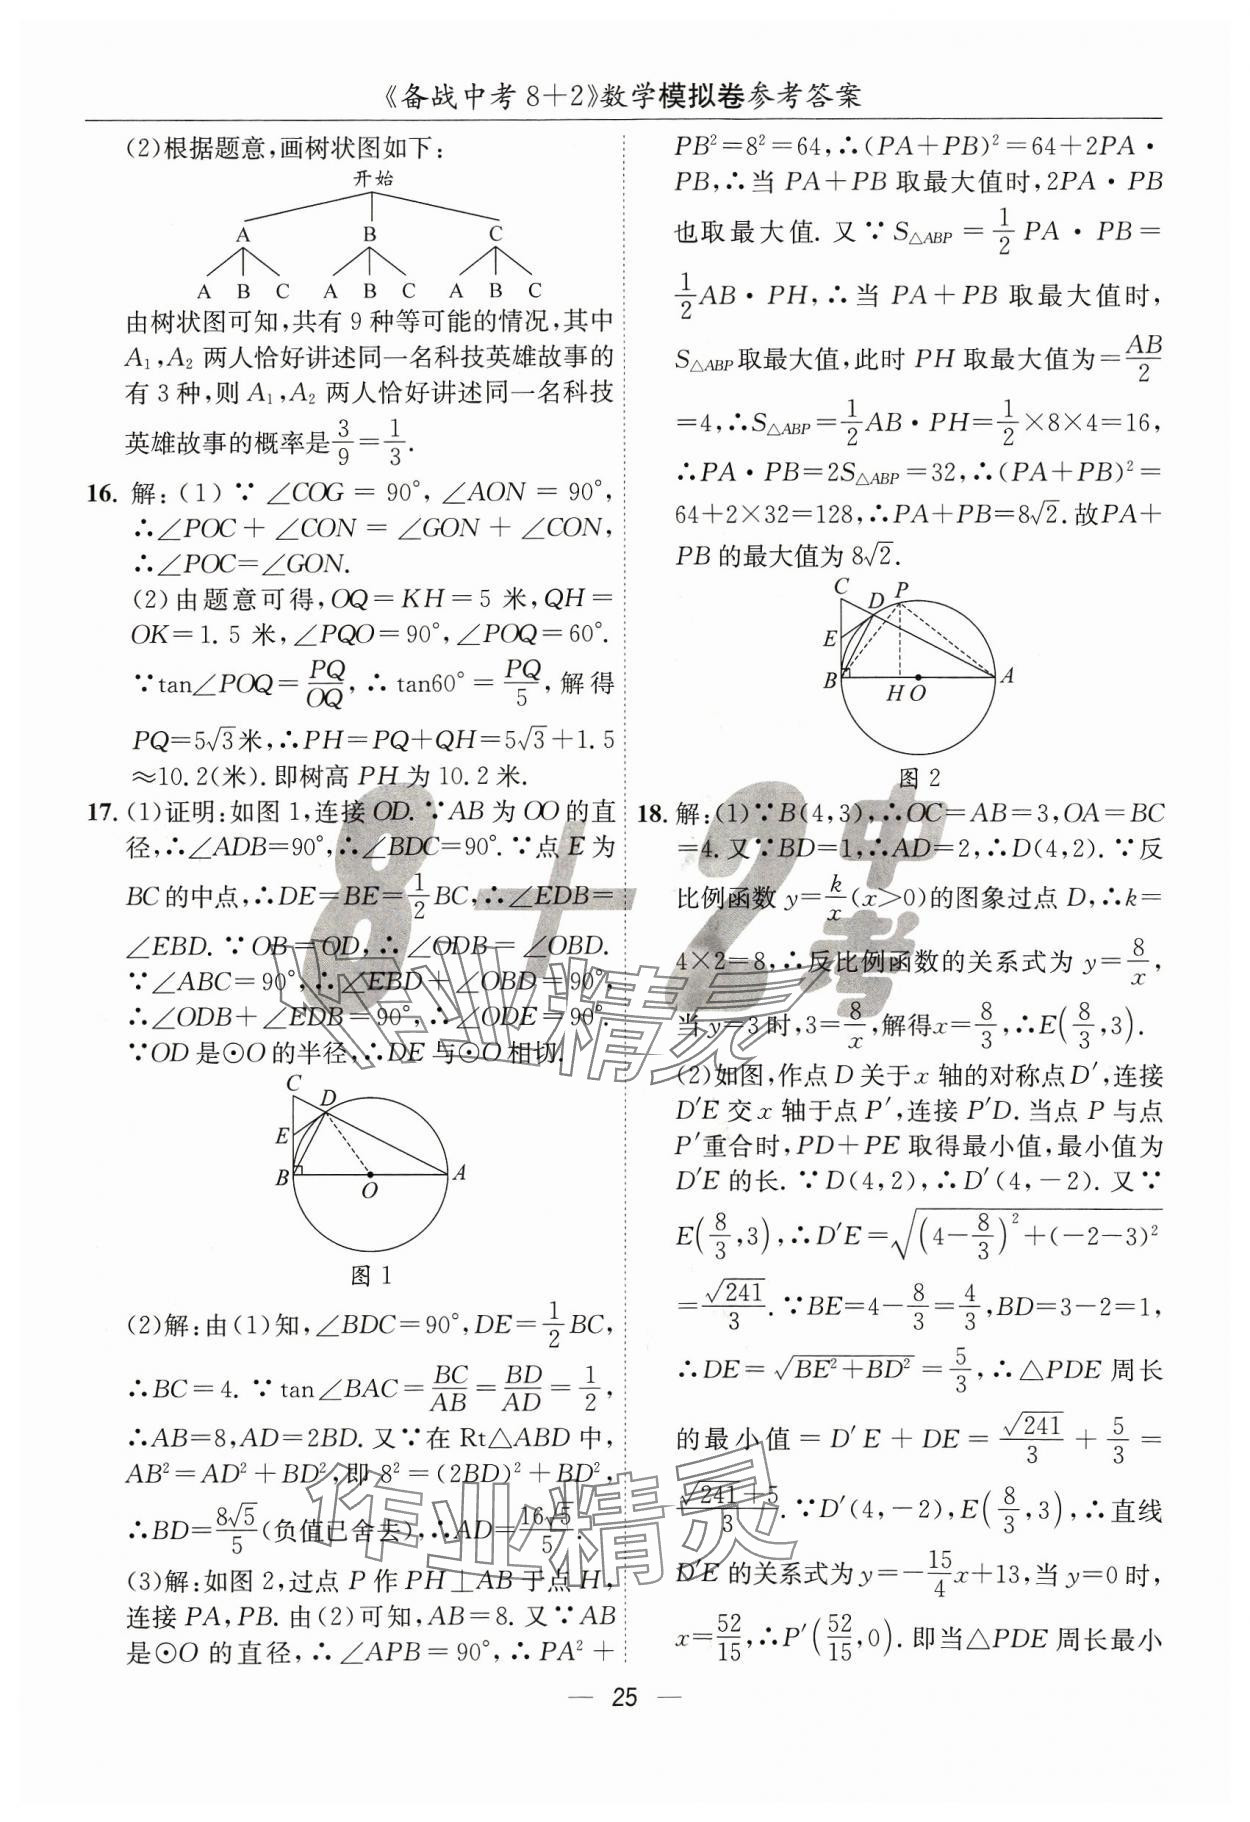 《备战中考8+2》数学模拟卷参考答案
(2)根据题意,画树状图如下:
开始
A B C
A B C A B C A B C
由树状图可知,共有9种等可能的情况,其中
A₁,A₂两人恰好讲述同一名科技英雄故事的
有3种,则A₁,A₂两人恰好讲述同一名科技
英雄故事的概率是3/9=1/3.
16. 解:(1)∵∠COG=90°,∠AON=90°,
∴∠POC+∠CON=∠GON+∠CON,
∴∠POC=∠GON.
(2)由题意可得,OQ=KH=5米,QH=
OK=1.5米,∠PQO=90°,∠POQ=60°.
∵tan∠POQ=PQ/OQ,∴tan60°=PQ/5,解得
PQ=5√3米,∴PH=PQ+QH=5√3+1.5
≈10.2(米).即树高PH为10.2米.
17. (1)证明:如图1,连接OD.∵AB为⊙O的直
径,∴∠ADB=90°,∴∠BDC=90°.∵点E为
BC的中点,∴DE=BE=1/2BC,∴∠EDB=
∠EBD.∵OB=OD,∴∠ODB=∠OBD.
∵∠ABC=90°,∴∠EBD+∠OBD=90°,
∴∠ODB+∠EDB=90°,∴∠ODE=90°.
∵OD是⊙O的半径,∴DE与⊙O相切.
C D E B O A
图1
(2)解:由(1)知,∠BDC=90°,DE=1/2BC,
∴BC=4.∵tan∠BAC=BC/AB=BD/AD=1/2,
∴AB=8,AD=2BD.又∵在Rt△ABD中,
AB²=AD²+BD²,即8²=(2BD)²+BD²,
∴BD=8√5/5(负值已舍去),∴AD=16√5/5.
(3)解:如图2,过点P作PH⊥AB于点H,
连接PA,PB.由(2)可知,AB=8.又∵AB
是⊙O的直径,∴∠APB=90°,∴PA²+
PB²=8²=64,∴(PA+PB)²=64+2PA·
PB,∴当PA+PB取最大值时,2PA·PB
也取最大值.又∵S△ABP=1/2PA·PB=
1/2AB·PH,∴当PA+PB取最大值时,
S△ABP取最大值,此时PH取最大值为=AB/2
=4,∴S△ABP=1/2AB·PH=1/2×8×4=16,
∴PA·PB=2S△ABP=32,∴(PA+PB)²=
64+2×32=128,∴PA+PB=8√2.故PA+
PB的最大值为8√2.
C D P E B H O A
图2
18. 解:(1)∵B(4,3),∴OC=AB=3,OA=BC
=4.又∵BD=1,∴AD=2,∴D(4,2).∵反
比例函数y=k/x(x>0)的图象过点D,∴k=
4×2=8,∴反比例函数的关系式为y=8/x,
当y=3时,3=8/x,解得x=8/3,∴E(8/3,3).
(2)如图,作点D关于x轴的对称点D′,连接
D′E交x轴于点P′,连接P′D.当点P与点
P′重合时,PD+PE取得最小值,最小值为
D′E的长.∵D(4,2),∴D′(4,-2).又∵
E(8/3,3),∴D′E=√((4-8/3)²+(-2-3)²)
=√241/3.∵BE=4-8/3=4/3,BD=3-2=1,
∴DE=√(BE²+BD²)=5/3,∴△PDE周长
的最小值=D′E+DE=√241/3+5/3=
(√241+5)/3.∵D′(4,-2),E(8/3,3),∴直线
D′E的关系式为y=-15/4x+13,当y=0时,
x=52/15,∴P′(52/15,0).即当△PDE周长最小
8+2中考
作业精灵
作业精灵
— 25 —